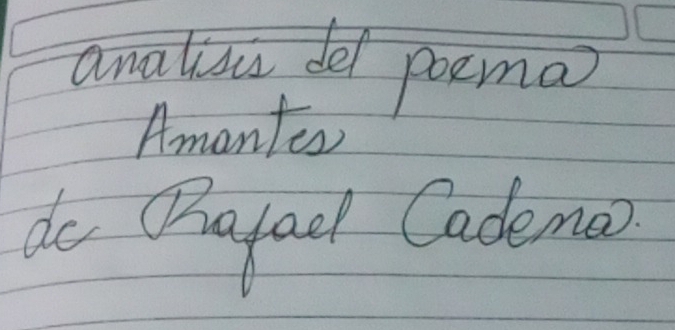 analisis del poema
Amantes
de Rafael Cadena.